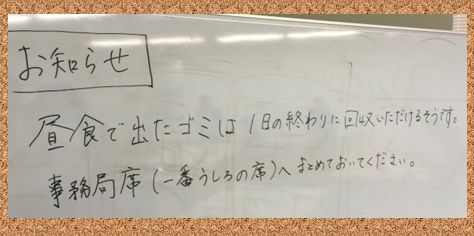 お知らせ
昼食で出たゴミは1日の終わりに回収いただけるそうです。
事務局席(一番うしろの席)へまとめておいてください。